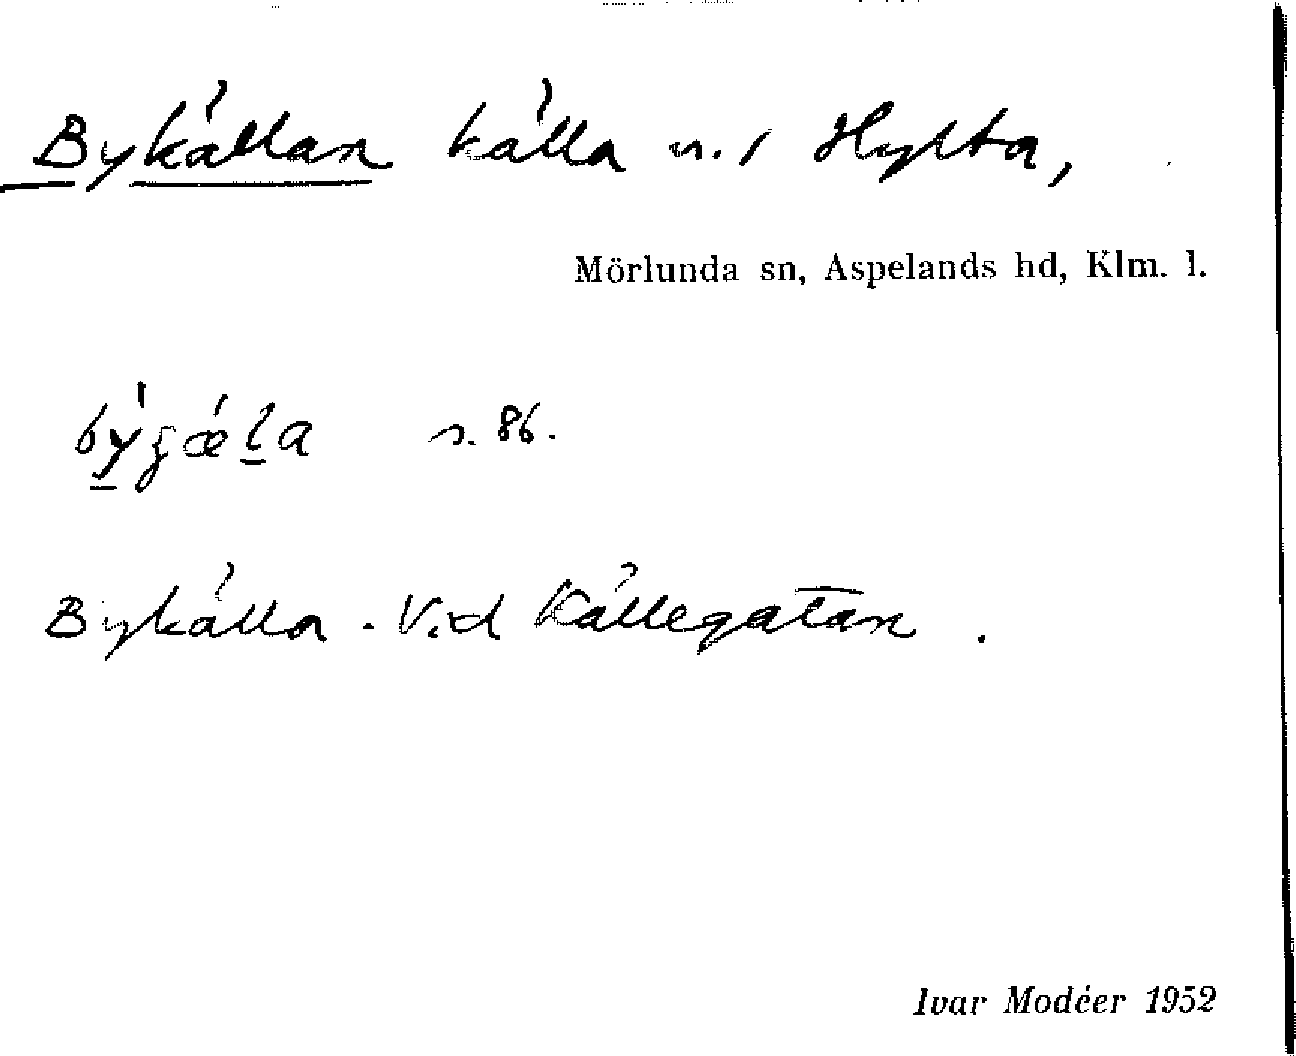 Bykällan källa n. Hylta,
Mörlunda sn, Aspelands hd, Klm. l.
s. 86.
Bykälla. Vid Källegatan.
Ivar Modéer 1952